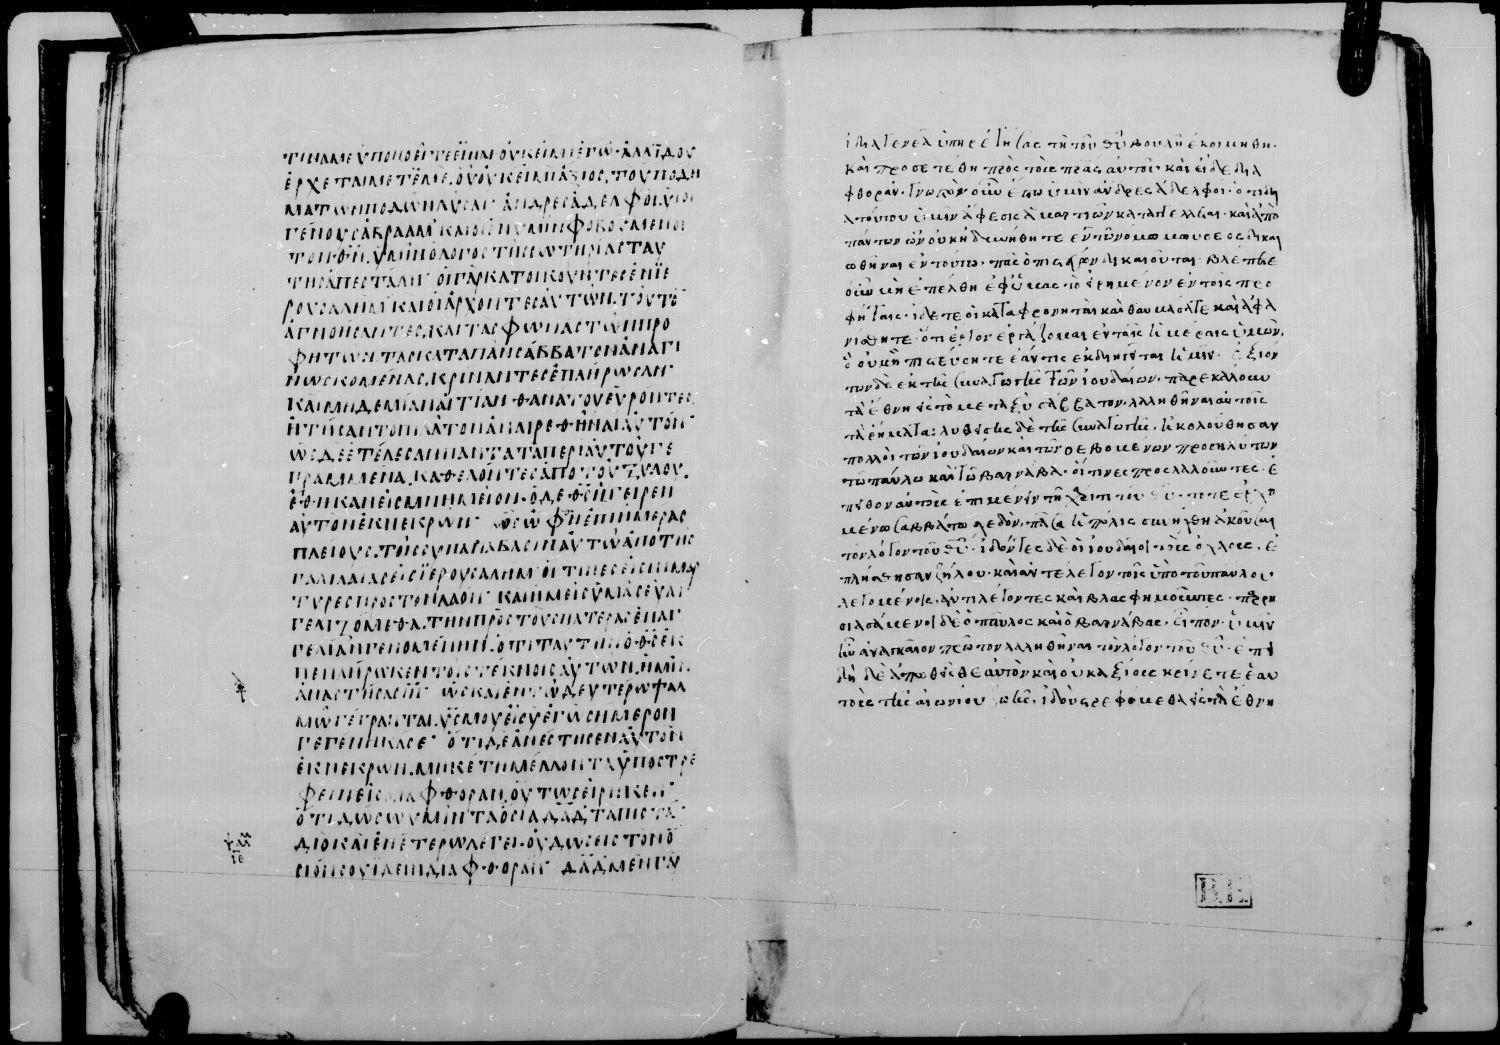 τιναμε ὑπονοεῖτε εἶναι· οὐκ εἰμὶ ἐγώ· ἀλλ' ἰδοὺ
ἔρχεται μετ' ἐμέ. οὗ οὐκ εἰμὶ ἄξιος, τὸ ὑπόδη
μα τῶν ποδῶν λῦσαι· ἄνδρες ἀδελφοί. υἱοὶ
γένους ἀβραὰμ καὶ οἱ ἐν ὑμῖν φοβούμενοι
τὸν θν̄. ὑμῖν ὁ λόγος τῆς σωτηρίας ταύ
της ἀπεστάλη· οἱ γὰρ κατοικοῦντες ἐν ἱε
ρουσαλημ καὶ οἱ ἄρχοντες αὐτῶν. τοῦτο
ἀγνοήσαντες, καὶ τὰς φωνὰς τῶν προ
φητῶν τὰς κατὰ πᾶν σάββατον ἀναγι
νωσκομένας, κρίναντες ἐπλήρωσαν·
καὶ μηδεμίαν αἰτίαν θανάτου εὑρόντες
ᾔτησαντο πιλάτον ἀναιρεθῆναι αὐτόν·
ὡς δὲ ἐτέλεσαν πάντα τὰ περὶ αὐτοῦ γε
γραμμένα, καθελόντες ἀπὸ τοῦ ξύλου.
ἔθηκαν εἰς μνημεῖον. ὁ δὲ θσ̄ ἤγειρεν
αὐτὸν ἐκ νεκρῶν· ὃς ὤφθη ἐπὶ ἡμέρας
πλείους. τοῖς συναναβᾶσιν αὐτῷ ἀπὸ τῆς
γαλιλαίας εἰς ἱερουσαλήμ οἵτινες εἰσὶν μάρ
τυρες πρὸς τὸν λαόν· καὶ ἡμεῖς ὑμᾶς εὐαγ
γελιζόμεθα. τὴν πρὸς τοὺς πατέρας ἐπαγ
γελίαν γενομένην. ὅτι ταύτην ὁ θσ̄ ἐκ
πεπλήρωκεν τοῖς τέκνοις αὐτῶν. ἡμῖν.
ἀναστήσας ιν̄· ὡς καὶ ἐν τῷ δευτέρω ψαλ
μῷ γέγραπται. υσ̄ μου εἶ σὺ ἐγὼ σήμερον
γεγέννηκά σε· ὅτι δὲ ἀνέστησεν αὐτὸν
ἐκ νεκρῶν. μηκέτι μέλλοντα ὑποστρέ
φειν εἰς διαφθοράν, οὕτως εἴρηκεν·
ὅτι δώσω ὑμῖν τὰ ὅσια δᾱδ τὰ πιστά·
διὸ καὶ ἐν ἑτέρω λέγει. οὐ δώσεις τὸν ὅ
σιόν σου ἰδεῖν διαφθοράν· δᾱδ μὲν γὰρ
ψαλμ
ιε
ἰδία γενεᾶ ὑπηρέτησας τῆ τοῦ θῡ βουλῆ ἐκοιμήθη.
καὶ προσετέθη πρὸς τοὺς πρ̄ας αὐτοῦ· καὶ εἶδε δια
φθοράν· γνωστὸν οὖν ἔστω ὑμῖν ἄνδρες ἀδελφοί. ὅτι δι
ὰ τούτου ὑμῖν ἄφεσις ἁμαρτιῶν καταγγέλλεται. καὶ ἀπὸ
πάντων ὧν οὐκ ἠδυνήθητε ἐν τῶ νόμω μωυσέως δικαι
ωθῆναι ἐν τούτω. πᾶς ὁ πιστεύων δικαιοῦται. βλέπετε
οὖν μὴ ἐπέλθη ἐφ' ὑμᾶς τὸ εἰρημένον ἐν τοῖς προ
φήταις. ἴδετε οἱ καταφρονηταὶ καὶ θαυμάσατε καὶ ἀφα
νίσθητε. ὅτι ἔργον ἐργάζομαι ἐν ταῖς ἡμέραις ὑμῶν.
ὃ οὐ μὴ πιστεύσητε ἐάν τις ἐκδιηγῆται ὑμῖν· ἐξιόν
των δὲ ἐκ τῆς συναγωγῆς τῶν ἰουδαίων. παρεκάλουν
τὰ ἔθνη εἰς τὸ μεταξὺ σάββατον. λαληθῆναι αὐτοῖς
τὰ ῥήματα: λυθείσης δὲ τῆς συναγωγῆς, ἠκολούθησαν
πολλοὶ τῶν ἰουδαίων καὶ τῶν σεβομένων προσηλύτων
τῶ παύλω καὶ τῶ βαρνάβα. οἵτινες προσλαλοῦντες. ἔ
πειθον αὐτοὺς ἐπιμένειν τῆ χάριτι τοῦ θῡ. τό τε ἐρχο
μένω σαββάτω σχεδὸν. πᾶσα ἡ πόλις συνήχθη ἀκοῦσαι
τὸν λόγον τοῦ θῡ. ἰδόντες δὲ οἱ ἰουδαῖοι τοὺς ὄχλους. ἐ
πλήσθησαν ζήλου. καὶ ἀντέλεγον τοῖς ὑπὸ τοῦ παύλου
λεγομένοις. ἀντιλέγοντες καὶ βλασφημοῦντες. παρρη
σιασάμενοι δὲ ὁ παῦλος καὶ ὁ βαρνάβας. εἶπον. ὑμῖν
ἦν ἀναγκαῖον πρῶτον λαληθῆναι τὸν λόγον τοῦ θῡ. ἐπει
δὴ δὲ ἀπωθεῖσθε αὐτὸν καὶ οὐκ ἀξίους κρίνετε ἑαυ
τοὺς τῆς αἰωνίου ζωῆς. ἰδοὺ στρεφόμεθα εἰς τὰ ἔθνη